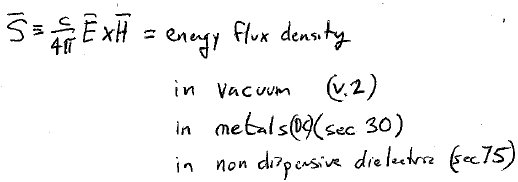 S̄ ≡ c/4π Ē x H̄ = energy flux density
in vacuum (v.2)
in metals (DC) (sec 30)
in non dispersive dielectric (sec 75)